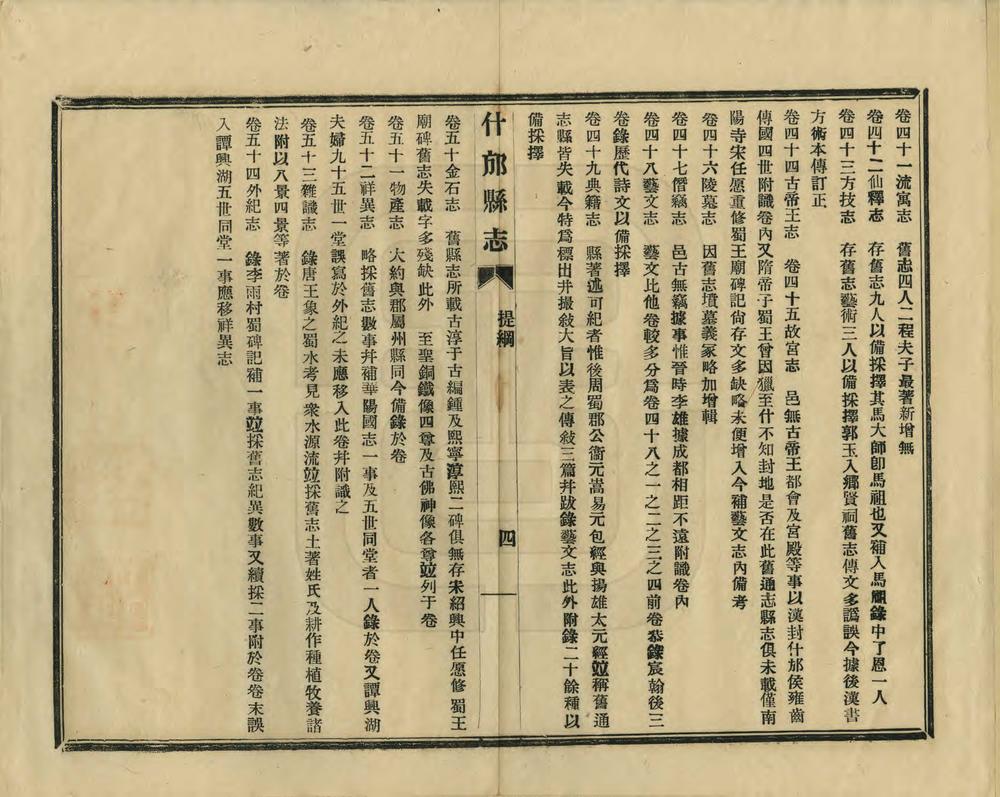 卷四十一流寓志　舊志四人二程夫子最著新增無
卷四十二仙釋志　存舊志九人以備採擇其馬大師卽馬祖也又補入馬祖錄中了恩一人
卷四十三方技志　存舊志藝術三人以備採擇郭玉入鄉賢祠舊志傳文多譌誤今據後漢書
方術本傳訂正
卷四十四古帝王志　卷四十五故宮志　邑無古帝王都會及宮殿等事以漢封什邡侯雍齒
傳國四世附識卷內又隋帝子蜀王曾因獵至什不知封地是否在此舊通志縣志俱未載僅南
陽寺宋任愿重修蜀王廟碑記尙存文多缺略未便增入今補藝文志內備考
卷四十六陵墓志　因舊志墳墓義冢略加增輯
卷四十七僭竊志　邑古無竊據事惟晉時李雄據成都相距不遠附識卷內
卷四十八藝文志　藝文比他卷較多分爲卷四十八之一之二之三之四前卷恭錄宸翰後三
卷錄歷代詩文以備採擇
卷四十九典籍志　縣著述可紀者惟後周蜀郡公衞元嵩易元包經與揚雄太元經竝稱舊通
志縣皆失載今特爲標出幷撮敘大旨以表之傳敍三篇幷跋錄藝文志此外附錄二十餘種以
備採擇
什邡縣志　提綱　四
卷五十金石志　舊縣志所載古淳于古編鍾及熙寧淳熙二碑俱無存宋紹興中任愿修蜀王
廟碑舊志失載字多殘缺此外　至聖銅鐵像四尊及古佛神像各尊竝列于卷
卷五十一物產志　大約與郡屬州縣同今備錄於卷
卷五十二祥異志　略採舊志數事幷補華陽國志一事及五世同堂者一人錄於卷又譚興湖
夫婦九十五世一堂誤寫於外紀之未應移入此卷幷附識之
卷五十三雜識志　錄唐王象之蜀水考見衆水源流竝採舊志土著姓氏及耕作種植牧養諸
法附以八景四景等著於卷
卷五十四外紀志　錄李雨村蜀碑記補一事竝採舊志紀異數事又續採二事附於卷卷末誤
入譚興湖五世同堂一事應移祥異志